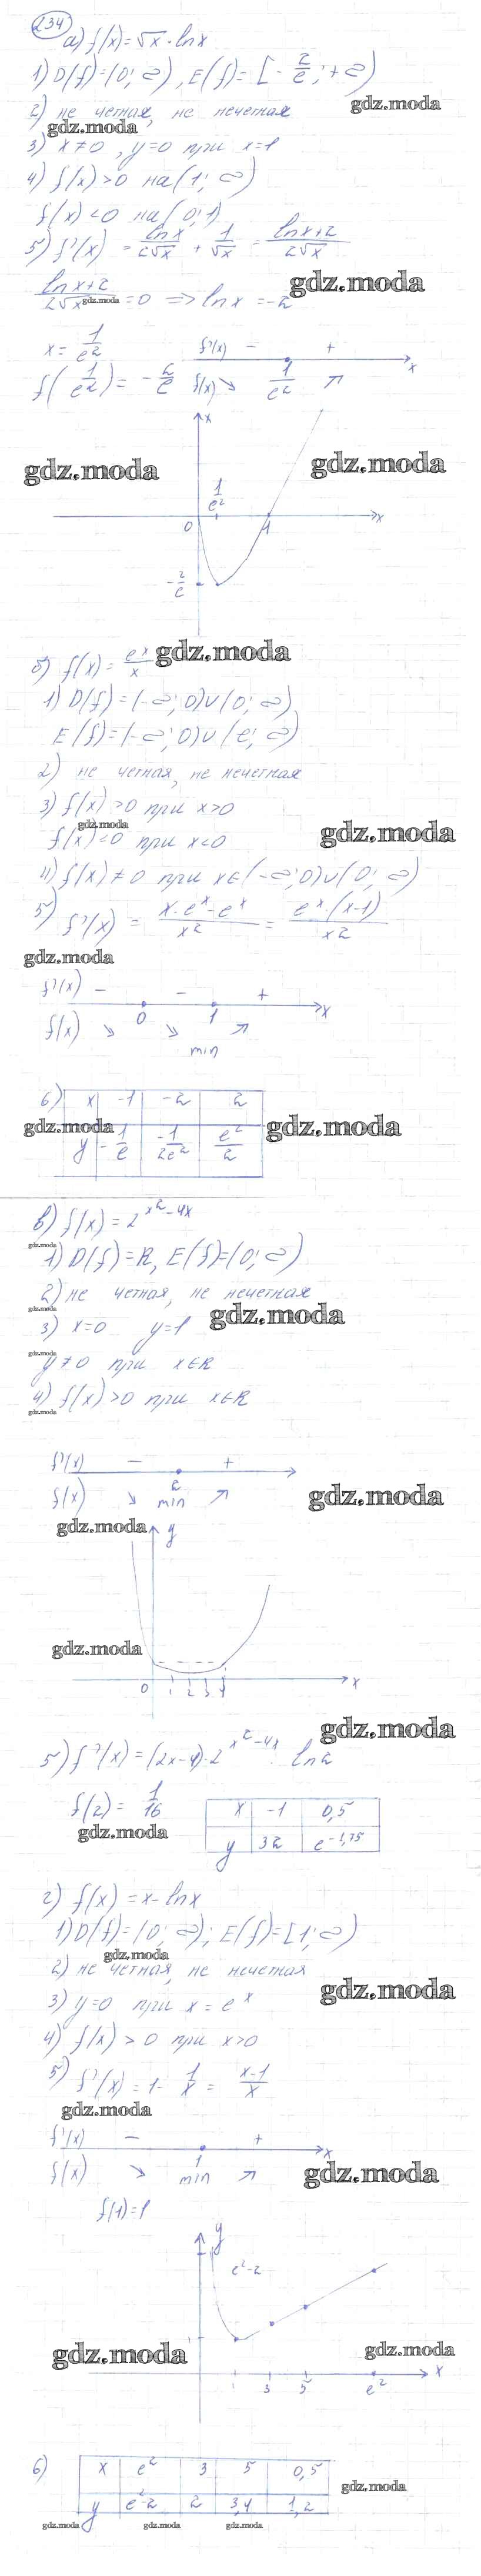 234
а) f(x)=√x·lnx
1) D(f)=(0; ∞), E(f)=[-2/e; +∞)
gdz.moda
2) не четная, не нечетная
gdz.moda
3) x≠0, y=0 при x=1
4) f(x)>0 на (1; ∞)
f(x)<0 на (0; 1)
5) f'(x) = lnx/2√x + 1/√x = lnx+2/2√x
gdz.moda
lnx+2/2√x =0 => lnx=-2
gdz.moda
x= 1/e²
f'(x) - + x
f(1/e²)= -2/e f(x) ↘ 1/e² ↗
x
gdz.moda gdz.moda
1/e²
0 1 x
-2/e
б) f(x)= eˣ/x
gdz.moda
1) D(f)=(-∞; 0)∪(0; ∞)
E(f)=(-∞; 0)∪(e; ∞)
2) не четная, не нечетная
3) f(x)>0 при x>0
gdz.moda gdz.moda
f(x)<0 при x<0
4) f(x)≠0 при x∈(-∞; 0)∪(0; ∞)
5) f'(x) = x·eˣ-eˣ/x² = eˣ(x-1)/x²
gdz.moda
f'(x) - - +
0 1 x
f(x) ↘ ↘ ↗
min
6) x -1 -2 2
gdz.moda gdz.moda
y -1/e -1/2e² e²/2
в) f(x)=2^x²-4x
gdz.moda
1) D(f)=R, E(f)=(0; ∞)
2) не четная, не нечетная
gdz.moda gdz.moda
3) x=0 y=1
gdz.moda
y≠0 при x∈R
4) f(x)>0 при x∈R
gdz.moda
f'(x) - +
2
f(x) ↘ min ↗
gdz.moda
gdz.moda
y
gdz.moda
0 1 2 3 4 x
gdz.moda
5) f'(x)=(2x-4)·2^x²-4x · ln2
f(2)= 1/16
gdz.moda
x -1 0,5
y 32 e^-1,75
г) f(x)=x-lnx
1) D(f)=(0; ∞); E(f)=[1; ∞)
gdz.moda
2) не четная, не нечетная
gdz.moda
3) y=0 при x=eˣ
4) f(x)>0 при x>0
5) f'(x)=1- 1/x = x-1/x
gdz.moda
f'(x) - + x
1
f(x) ↘ min ↗
gdz.moda
f(1)=1
y
e²-2
gdz.moda gdz.moda
1 3 5 e² x
6) x e² 3 5 0,5
gdz.moda
y e²-2 2 3,4 1,2
gdz.moda gdz.moda gdz.moda